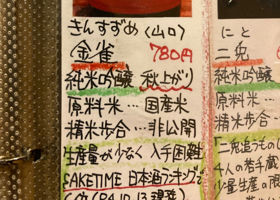 きんすずめ(山口)
金雀 780円
純米吟醸 秋上がり
原料米…国産米
精米歩合…非公開
生産量が少なく入手困難
SAKETIME 日本酒ランキング
にと
二兎
純米吟醸
原料米…
精米歩合…
"二兎追うもの
4人の若手蔵
少量生産の限